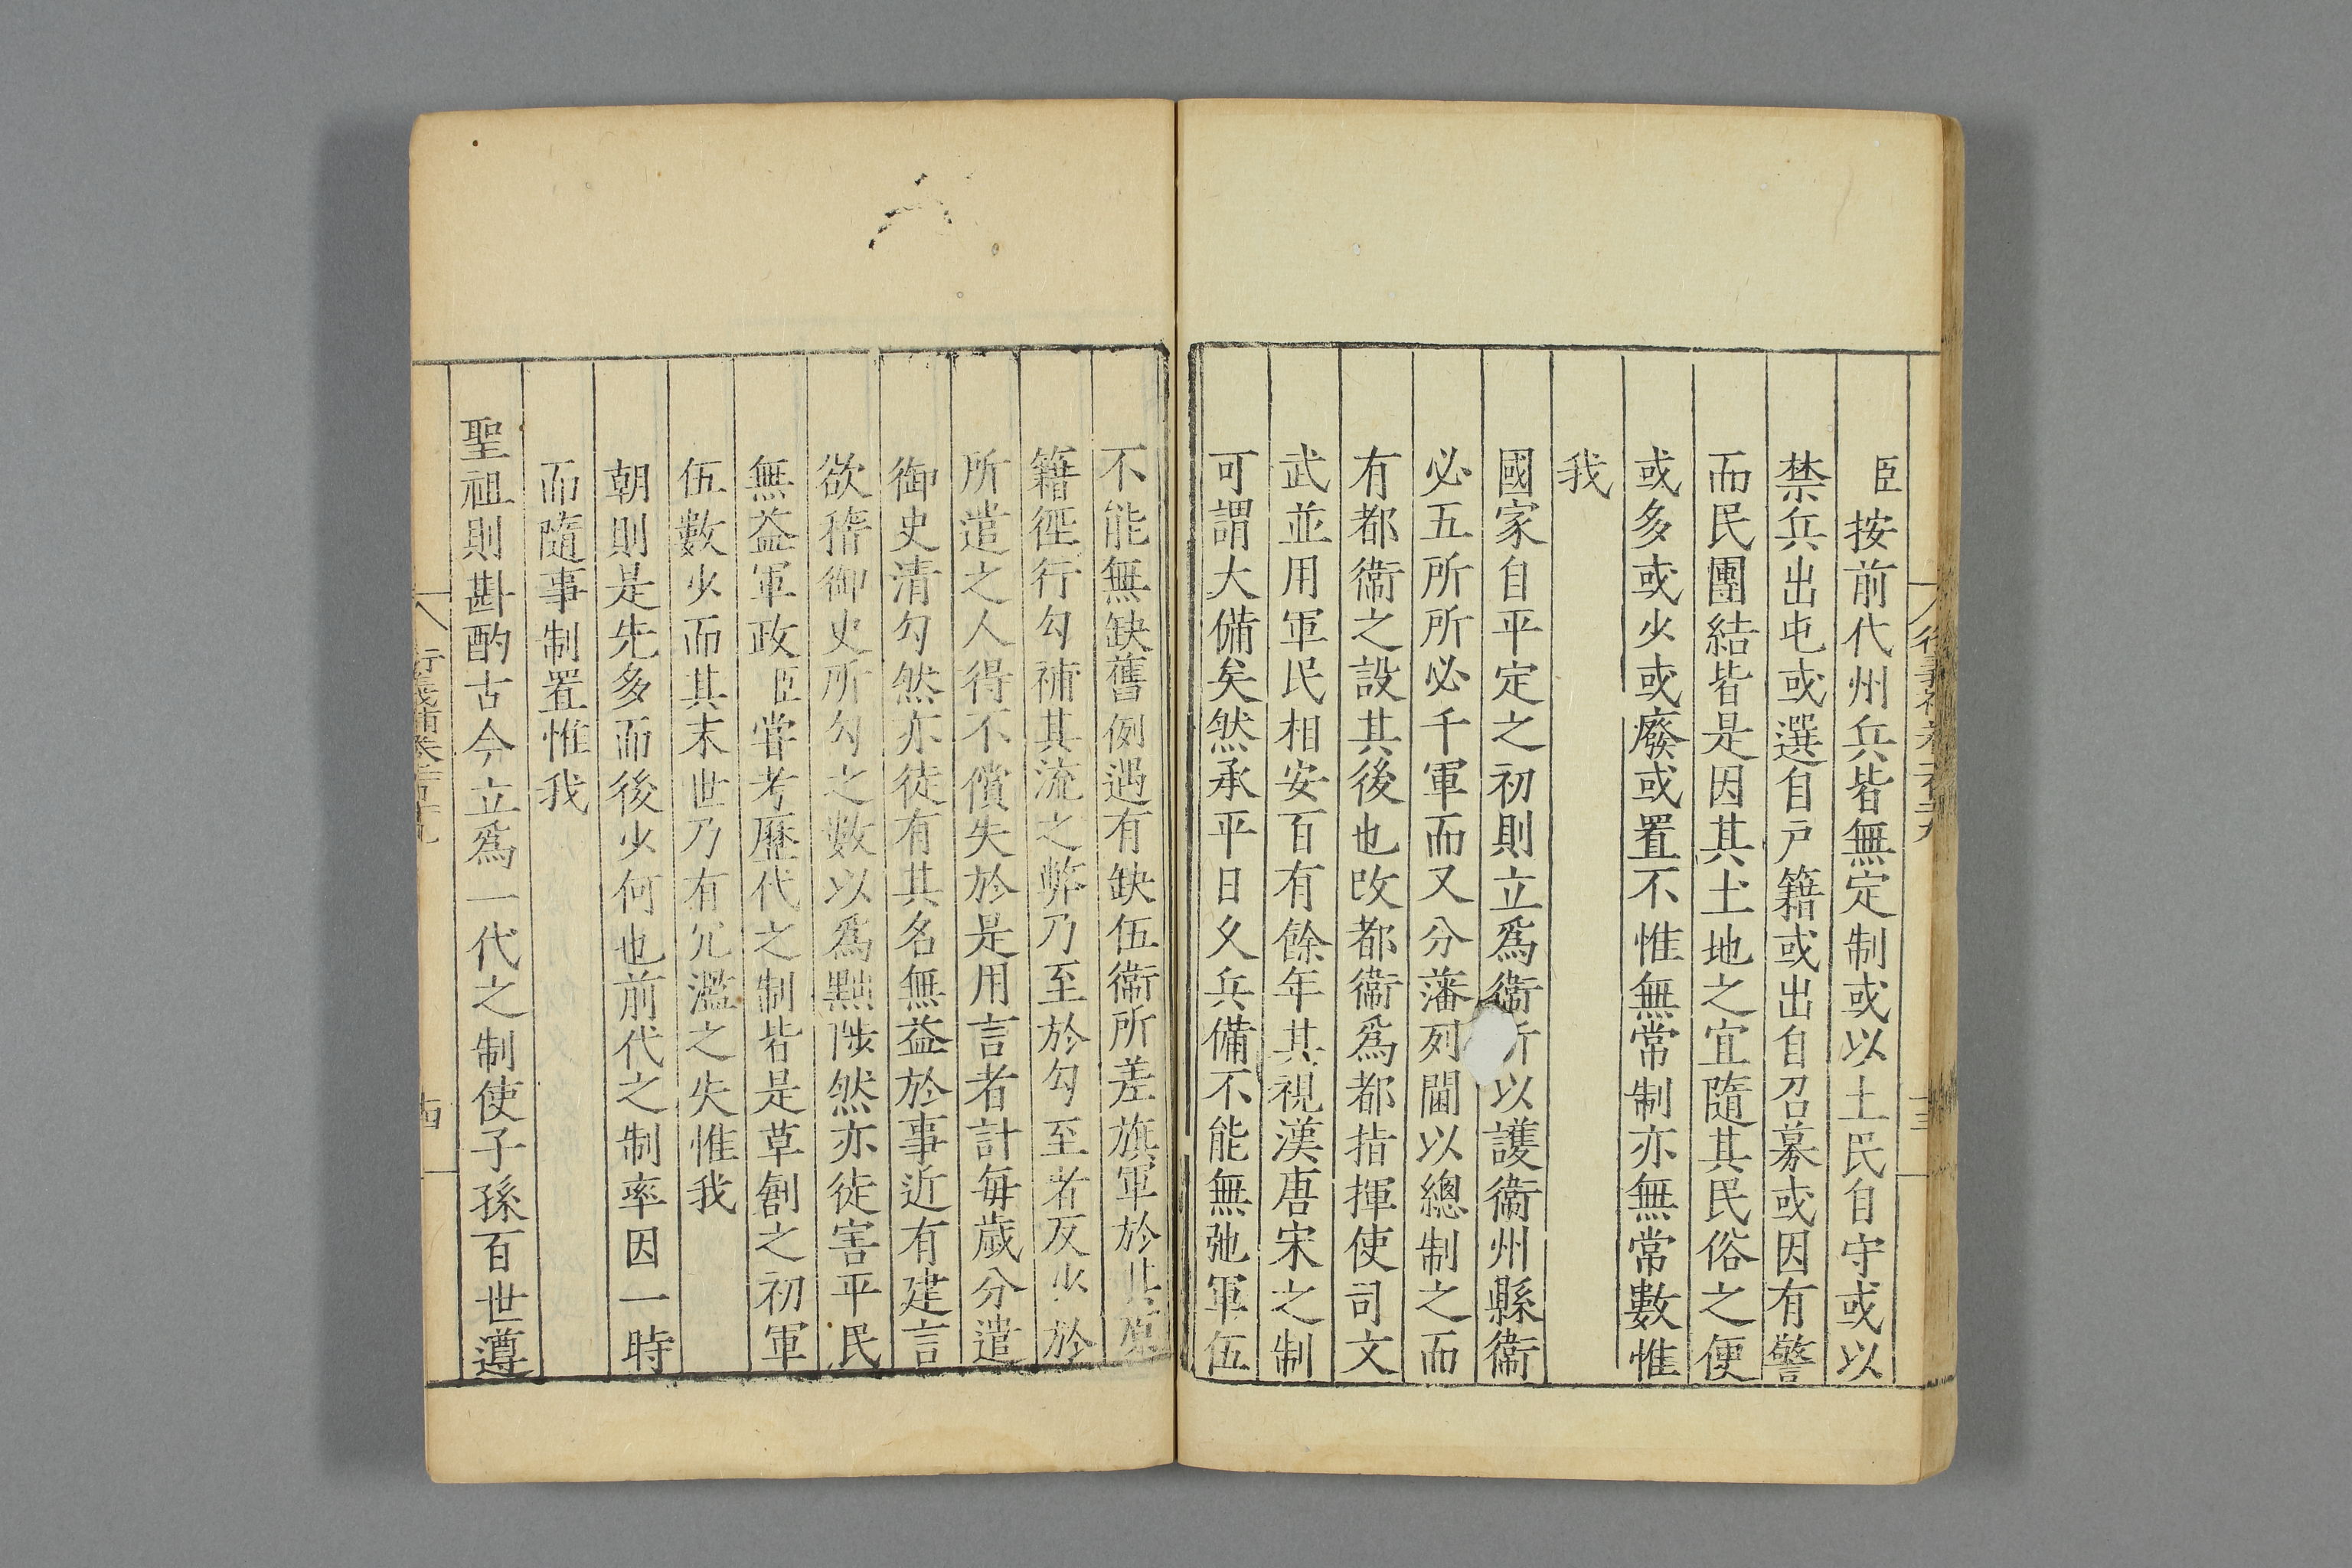 臣按前代州兵皆無定制或以土民自守或以
禁兵出屯或選自戸籍或出自召募或因有警
而民團結皆是因其土地之宜隨其民俗之便
或多或少或廢或置不惟無常制亦無常數惟
我
國家自平定之初則立爲衞所以護衞州縣衞
必五所所必千軍而又分藩列閫以總制之而
有都衞之設其後也改都衞爲都指揮使司文
武並用軍民相安百有餘年其視漢唐宋之制
可謂大備矣然承平日久兵備不能無弛軍伍
不能無缺舊例遇有缺伍衞所差旗軍於其原
籍徑行勾補其流之弊乃至於勾至者反少於
所遣之人得不償失於是用言者計每歲分遣
御史清勾然亦徒有其名無益於事近有建言
欲稽御史所勾之數以爲黜陟然亦徒害平民
無益軍政臣嘗考歷代之制皆是草創之初軍
伍數少而其末世乃有冗濫之失惟我
朝則是先多而後少何也前代之制率因一時
而隨事制置惟我
聖祖則斟酌古今立爲一代之制使子孫百世遵